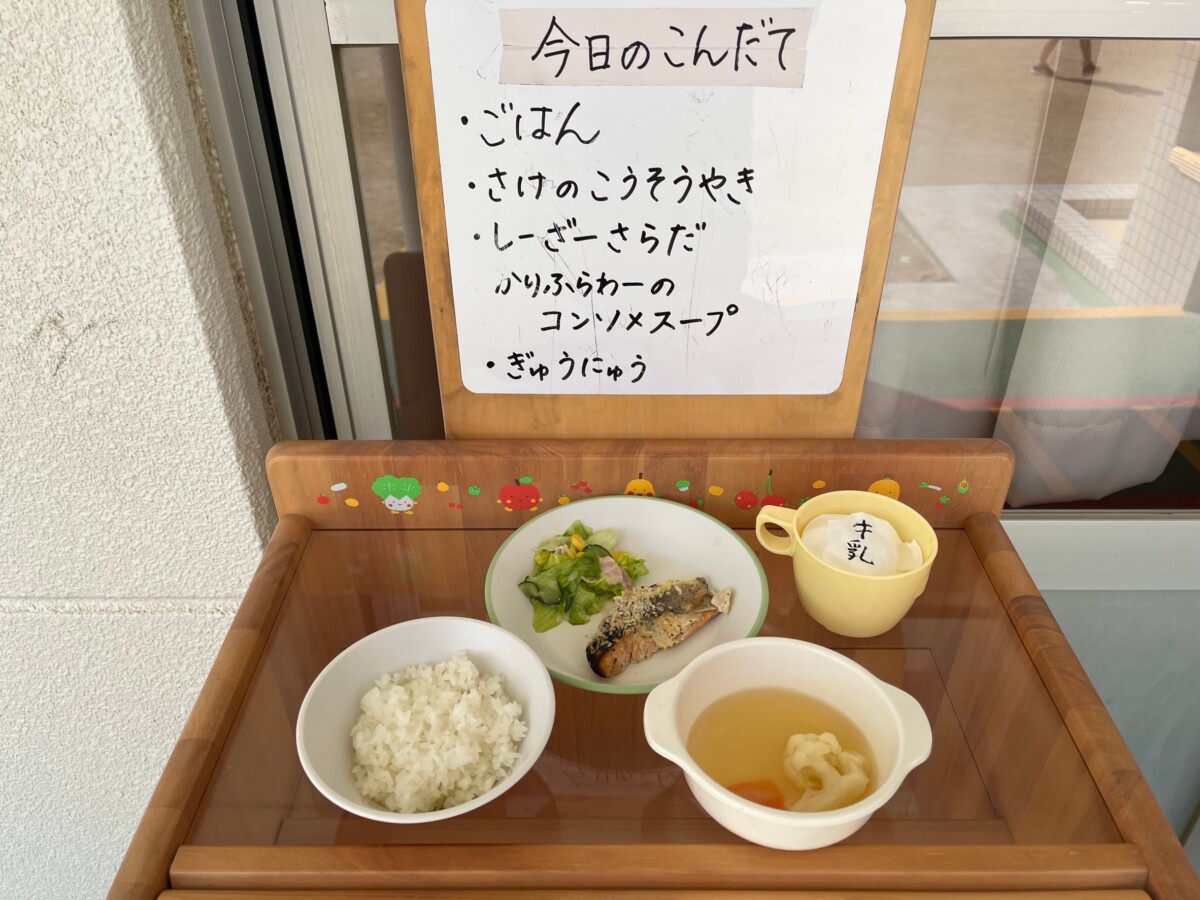 今日のこんだて
・ごはん
・さけのこうそうやき
・しーざーさらだ
かりふらわーの
コンソメスープ
・ぎゅうにゅう
牛乳